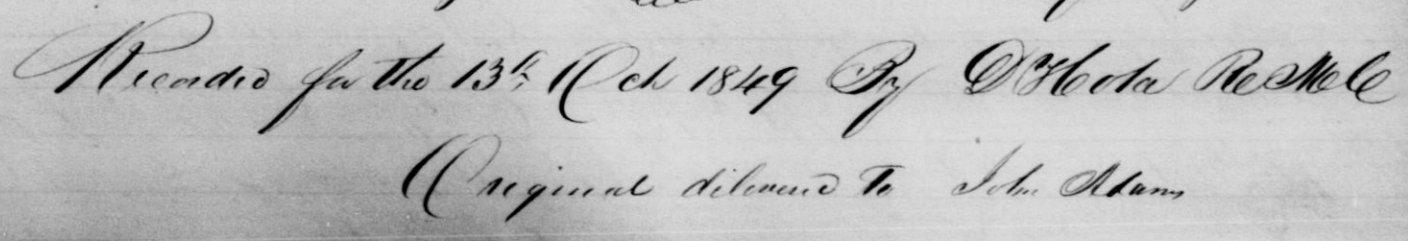 Recorded for the 13th Oct 1849 By D Hota RegMeCo
Original delivered to John Adams